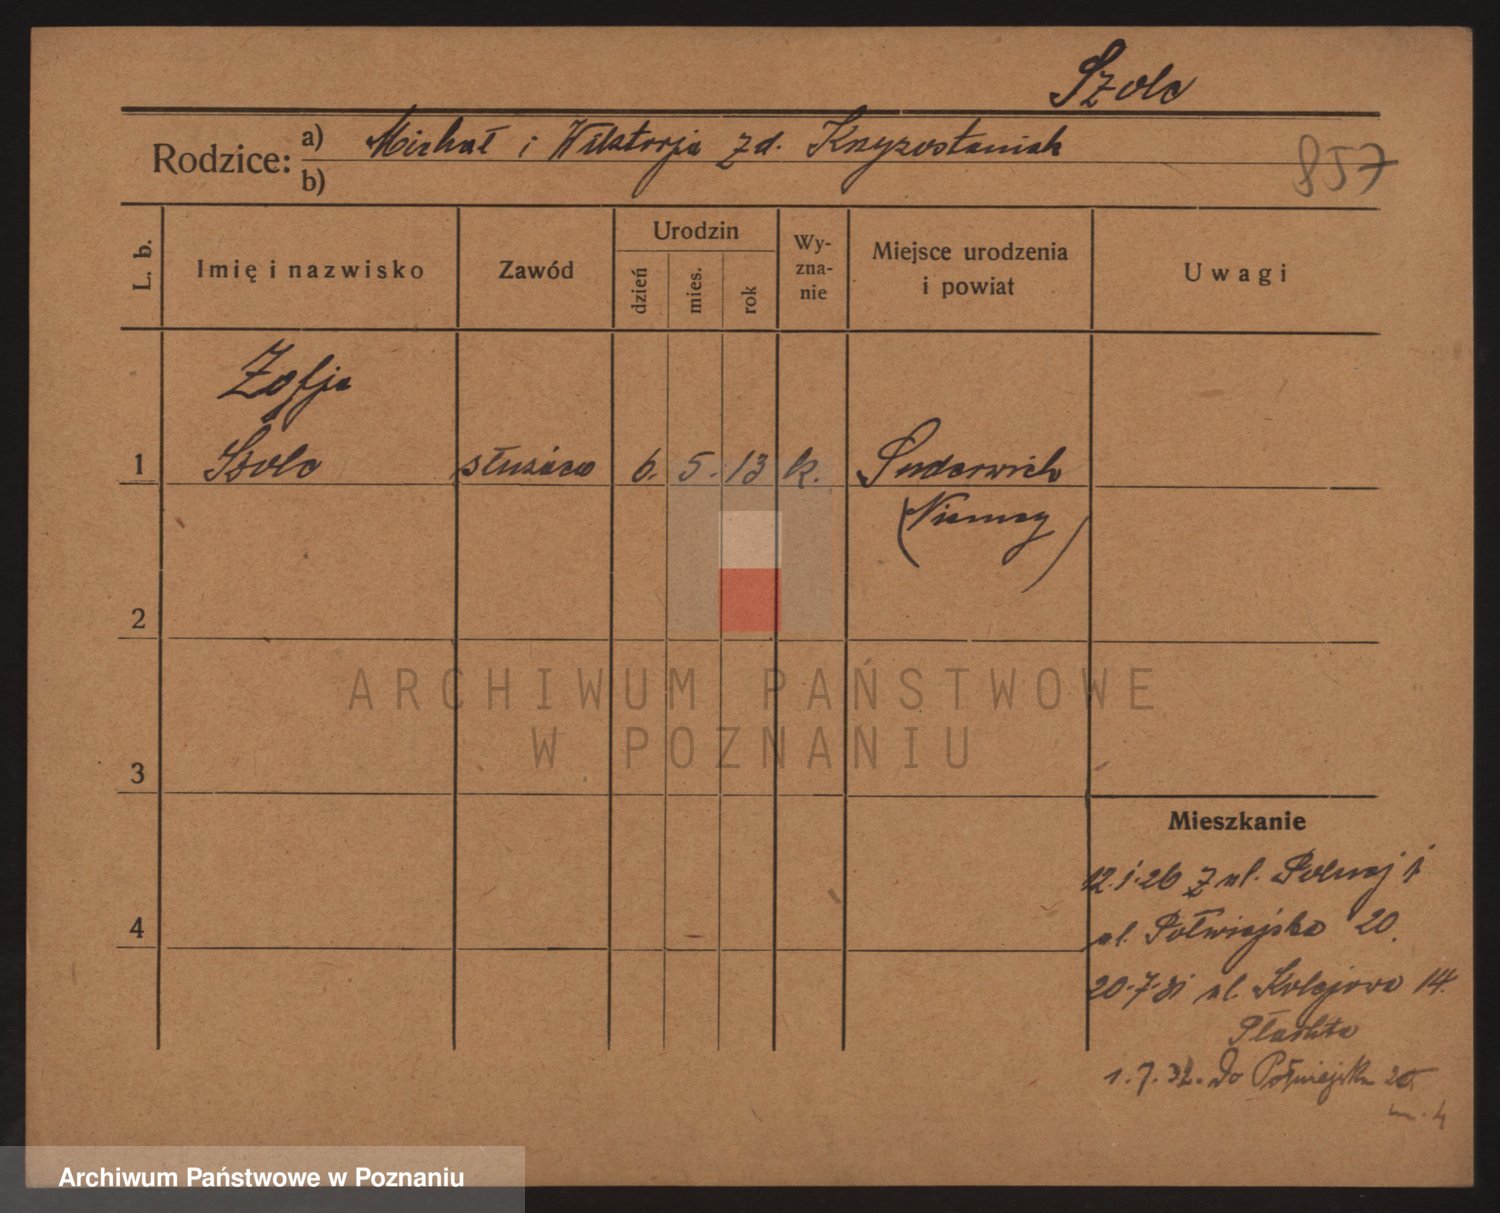 Szolc
Rodzice: a) Michał i Wiktorja z d. Krzyzostaniak
b)
857
L. b.
Imię i nazwisko
Zawód
Urodzin
dzień
mies.
rok
Wy-
zna-
nie
Miejsce urodzenia
i powiat
Uwagi
Zofja
1 Szolc służąca 6. 5. 13 k. Suderwich
(Niemcy)
2
3
4
ARCHIWUM PAŃSTWOWE
W POZNANIU
Mieszkanie
12.1.26 z ul. Polnej 1
ul. Półwiejska 20.
20.7.31 ul. Kolejowa 14.
1.7.32. do Półwiejska 20
m. 4
Archiwum Państwowe w Poznaniu